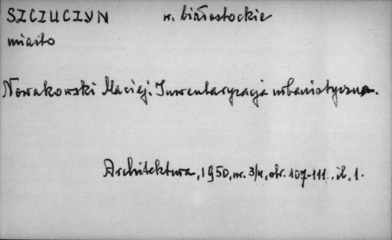 SZCZUCZYN w. białostockie
miasto
Nowakowski Maciej: Inwentaryzacja urbanistyczna.
Architektura, 1950, nr. 3/4, str. 107-111. il. 1.